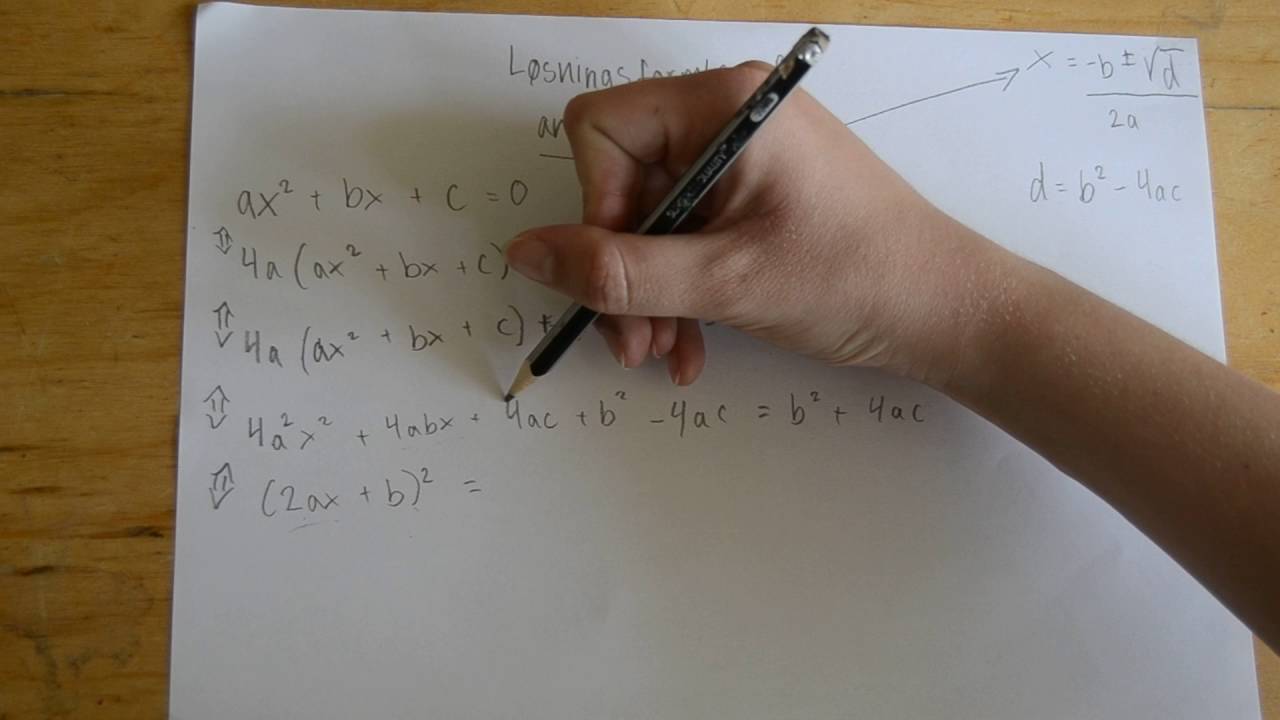 x = -b ± √d
2a
d = b² - 4ac
ax² + bx + c = 0
⇕ 4a (ax² + bx + c)
⇕ 4a (ax² + bx + c) +
⇕ 4a²x² + 4abx + 4ac + b² - 4ac = b² + 4ac
⇕ (2ax + b)² =